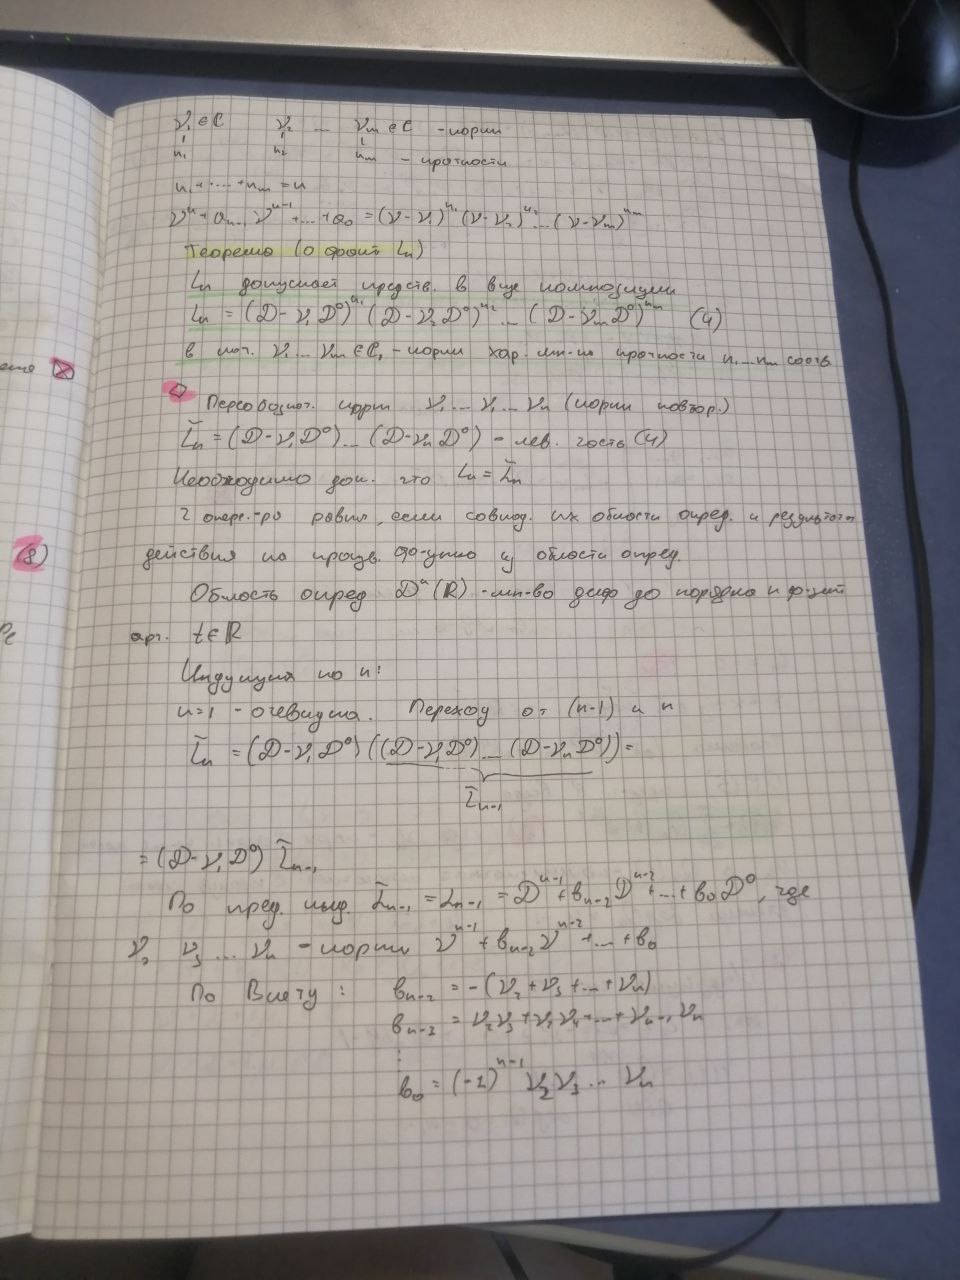 ν₁∈ℂ ν₂ ... νₘ∈ℂ - корни
n₁ n₂ nₘ - кратности
n₁+...+nₘ=n
νⁿ+aₙ₋₁νⁿ⁻¹+...+a₀=(ν-ν₁)^n₁ (ν-ν₂)^n₂ ... (ν-νₘ)^nₘ
Теорема (о факт Lₙ)
Lₙ допускает предст. в виде композиции
Lₙ = (D-ν₁D⁰)^n₁ (D-ν₂D⁰)^n₂ ... (D-νₘD⁰)^nₘ (4)
в кот. ν₁...νₘ∈ℂ, - корни хар. мн-на кратности n₁...nₘ соотв
Переобознач. корни ν₁...ν₁...νₙ (корни повтор.)
L̃ₙ = (D-ν₁D⁰)...(D-νₙD⁰) - лев. часть (4)
Необходимо док. что Lₙ = L̃ₙ
2 опер.-ра равны, если совпад. их области опред. и результаты
действия на произв. ф-цию из области опред.
Область опред Dⁿ(ℝ) - мн-во диф до порядка n ф-ций
арг. t∈ℝ
Индукция по n:
n=1 - очевидна. Переход от (n-1) к n
L̃ₙ = (D-ν₁D⁰)((D-ν₂D⁰)...(D-νₙD⁰))=
L̃ₙ₋₁
=(D-ν₁D⁰) L̃ₙ₋₁
По пред. инд. L̃ₙ₋₁ = Lₙ₋₁ = Dⁿ⁻¹+bₙ₋₂Dⁿ⁻²+...+b₀D⁰, где
ν₂ ν₃...νₙ - корни νⁿ⁻¹+bₙ₋₂νⁿ⁻²+...+b₀
По Виету: bₙ₋₂ = -(ν₂+ν₃+...+νₙ)
bₙ₋₃ = ν₂ν₃+ν₂ν₄+...+νₙ₋₁νₙ
⋮
b₀ = (-1)ⁿ⁻¹ν₂ν₃...νₙ
(8)